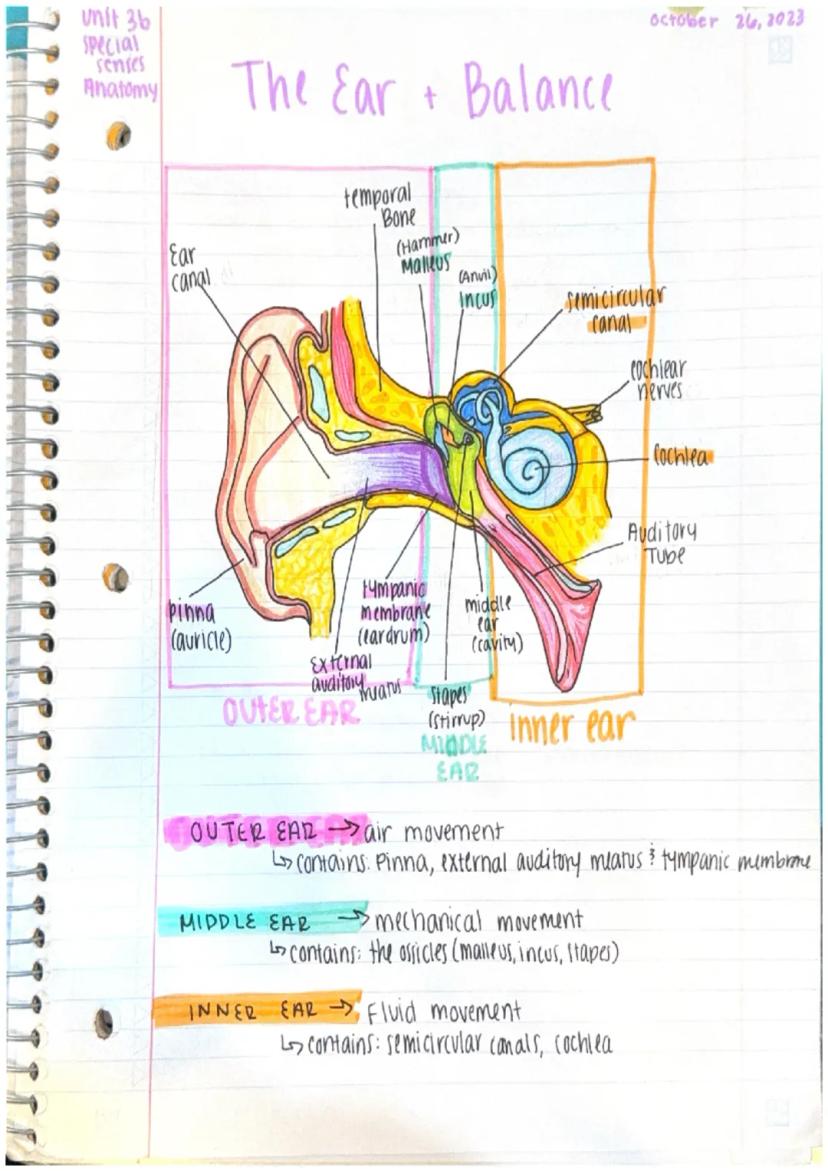 Unit 3b
special
senses
Anatomy
October 26, 2023
The Ear + Balance
temporal
Bone
(Hammer)
Malleus
(Anvil)
Incus
Ear
canal
semicircular
canal
cochlear
nerves
cochlea
Auditory
Tube
pinna
(auricle)
tympanic
membrane
(eardrum)
middle
ear
(cavity)
External
auditory
meatus
stapes
(stirrup)
OUTER EAR
MIDDLE
EAR
inner ear
OUTER EAR → air movement
↳ contains: Pinna, external auditory meatus & tympanic membrane
MIDDLE EAR → mechanical movement
↳ contains: the ossicles (malleus, incus, stapes)
INNER EAR → Fluid movement
↳ contains: semicircular canals, cochlea